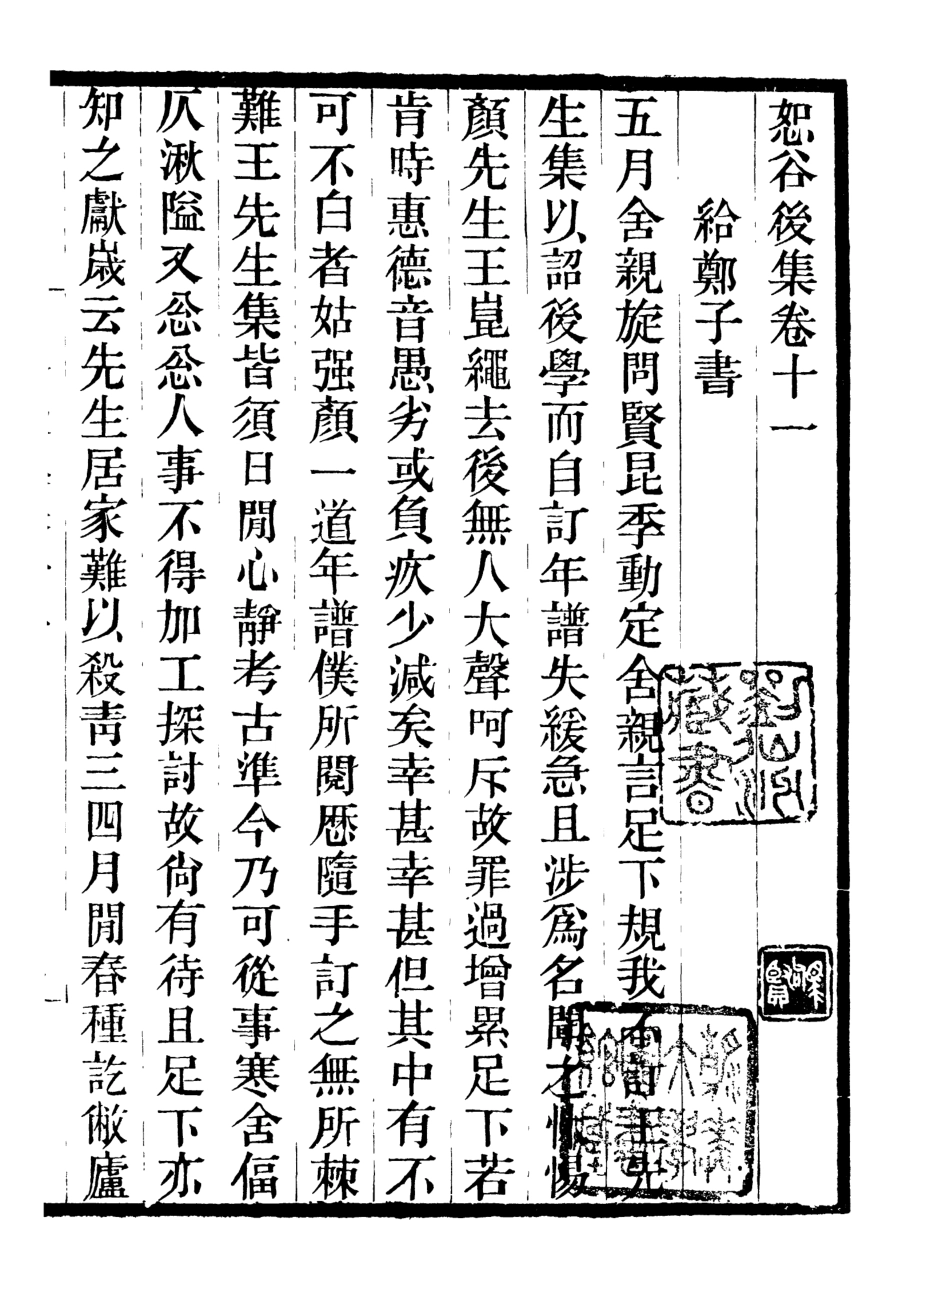 恕谷後集卷十一
給鄭子書
五月舍親旋問賢昆季動定舍親言足下規我不訂王先
生集以詔後學而自訂年譜失緩急且涉爲名聞之惕
顏先生王崑繩去後無人大聲呵斥故罪過增累足下若
肯時惠德音愚劣或負疚少減矣幸甚幸甚但其中有不
可不白者姑强顏一道年譜僕所閱歷隨手訂之無所棘
難王先生集皆須日閒心靜考古準今乃可從事寒舍偪
仄湫隘又忩忩人事不得加工探討故尙有待且足下亦
知之獻歲云先生居家難以殺靑三四月閒春種訖僌廬